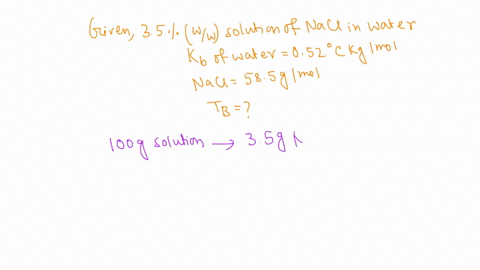 Given, 3.5% (w/w) solution of NaCl in water
Kb of water = 0.52°C Kg/mol
NaCl = 58.5g/mol
TB = ?
100g solution → 3.5g